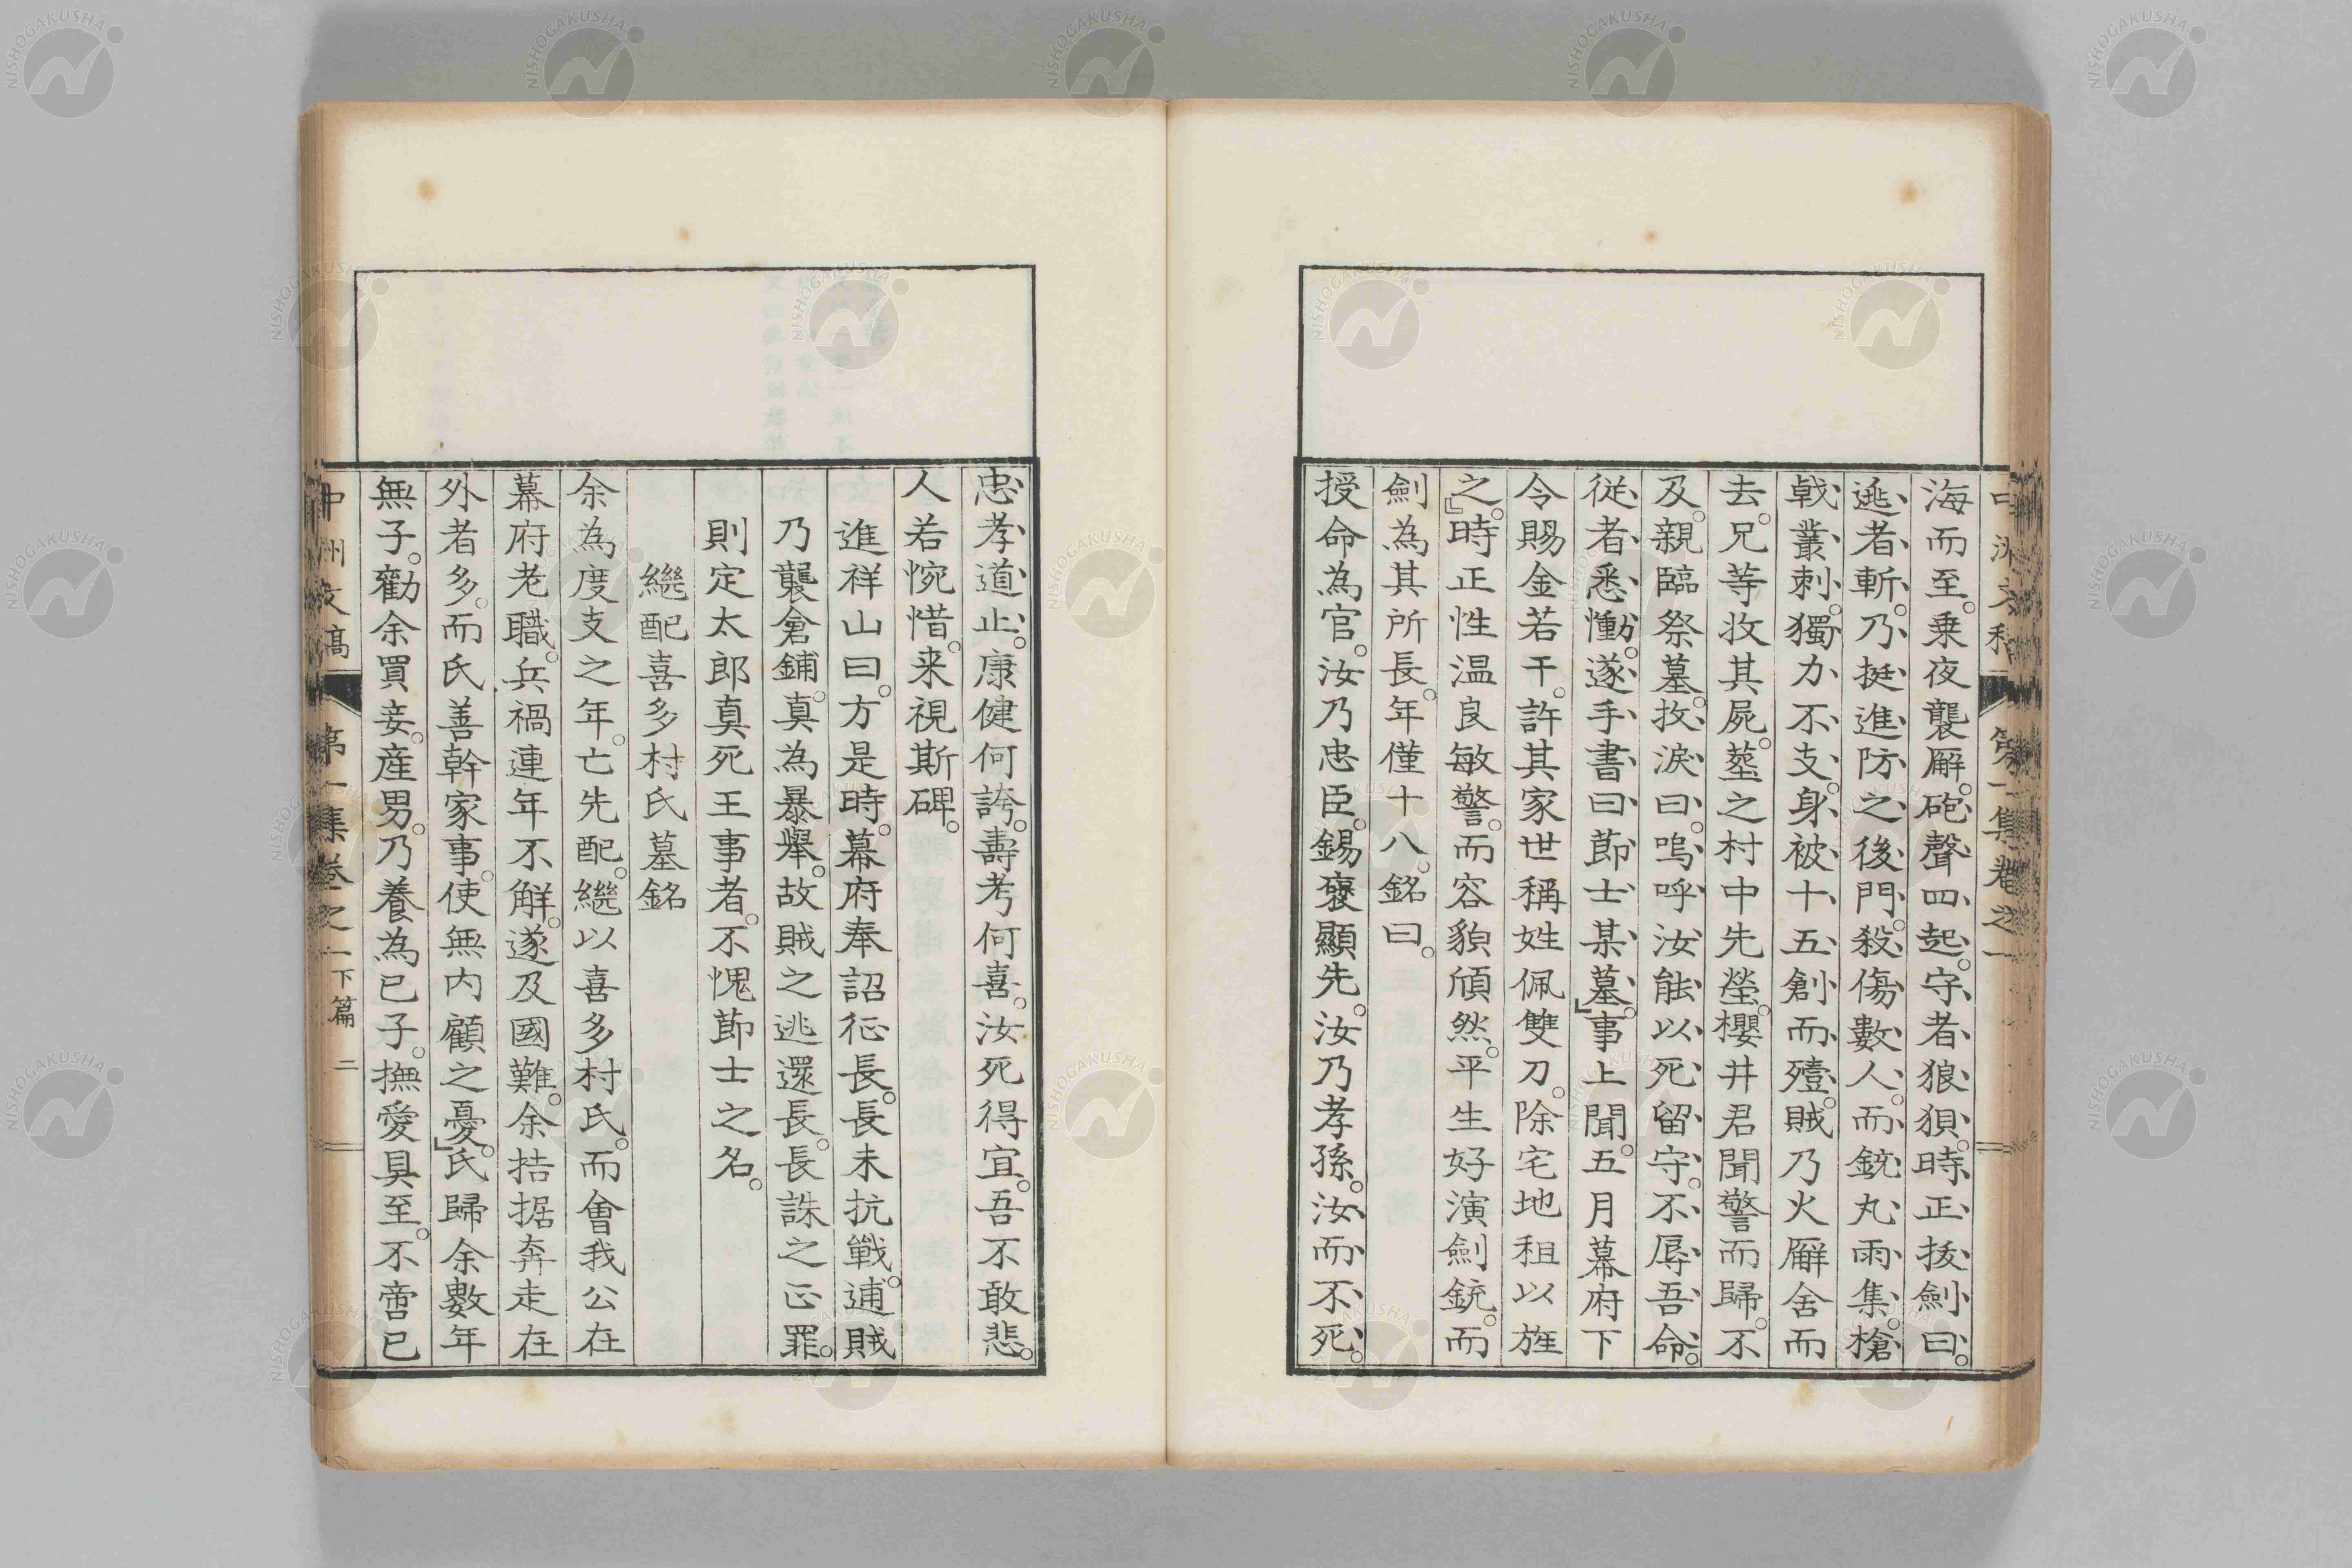 海而至。乗夜襲廨。砲聲四起。守者狼狽。時正抜劍曰。
逃者斬。乃挺進防之後門。殺傷數人。而銃丸雨集。槍
戟叢刺。獨力不支。身被十五創而殪。賊乃火廨舍而
去。兄等收其屍。塟之村中先塋。櫻井君聞警而歸。不
及。親臨祭墓。抆淚曰。嗚呼汝能以死留守。不辱吾命。
従者悉慟。遂手書曰節士某墓。」事上聞。五月幕府下
令賜金若干。許其家世稱姓佩雙刀。除宅地租以旌
之。」時正性温良敏警。而容貌頎然。平生好演劍銃。而
劍為其所長。年僅十八。銘曰。
授命為官。汝乃忠臣。錫褒顯先。汝乃孝孫。汝而不死。
忠孝道止。康健何誇。壽考何喜。汝死得宜。吾不敢悲。
人若惋惜。来視斯碑。
進祥山曰。方是時。幕府奉詔征長。長未抗戰。逋賊
乃襲倉鋪。真為暴舉。故賊之逃還長。長誅之正罪。
則定太郎真死王事者。不愧節士之名。
繼配喜多村氏墓銘
余為度支之年。亡先配。繼以喜多村氏。而會我公在
幕府老職。兵禍連年不解。遂及國難。余拮据奔走在
外者多。而氏善幹家事。使無内顧之憂。」氏歸余數年
無子。勸余買妾。産男。乃養為已子。撫愛具至。不啻已
中洲文稿 第一集卷之一下篇 二
NISHOGAKUSHA